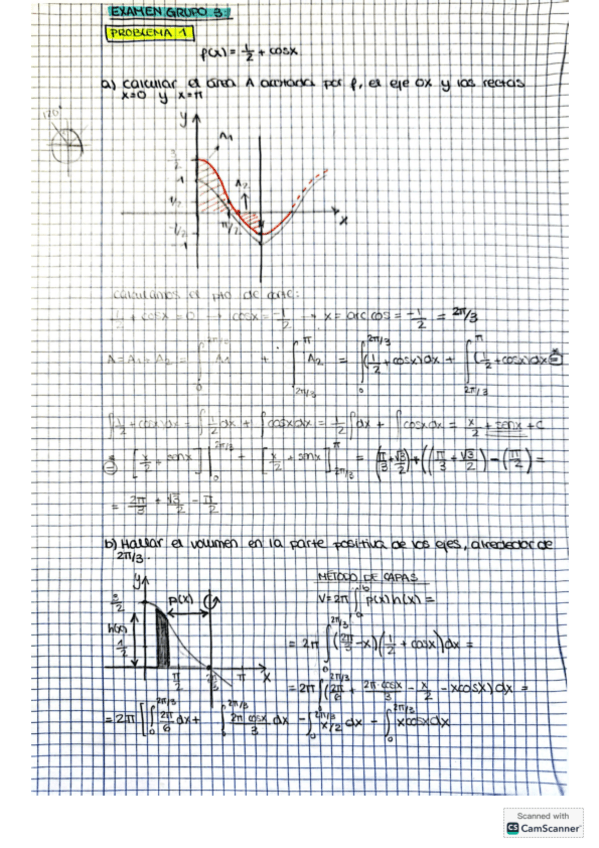 EXAMEN GRUPO 3:
PROBLEMA 1
f(x) = 1/2 + cosx
a) calcular el área A acotada por f, el eje ox y las rectas
x=0 y x=π
120°
y
A1
3/2
1
A2
1/2
π/2
x
-1/2
-1
Calculamos el pto de corte:
1/2 + cosx = 0 → cosx = -1/2 → x = arc cos = -1/2 = 2π/3
A = A1 + A2 = ∫_0^{2π/3} A1 + ∫_{2π/3}^π A2 = ∫_0^{2π/3} (1/2 + cosx)dx + ∫_{2π/3}^π (1/2 + cosx)dx =
∫(1/2 + cosx)dx = ∫1/2 dx + ∫cosxdx = 1/2 ∫dx + ∫cosxdx = x/2 + senx + C
= [x/2 + senx]_0^{2π/3} + [x/2 + senx]_{2π/3}^π = (π/3 + √3/2) + ((π/3 + √3/2) - (π/2) =
= 2π/3 + √3/2 - π/2
b) Hallar el volumen en la parte positiva de los ejes, alrededor de
2π/3.
MÉTODO DE CAPAS
y
3/2
p(x)
h(x)
1/2
π/2
2π/3
π
x
V = 2π ∫_a^b p(x)h(x) =
= 2π ∫_0^{2π/3} (2π/3 - x)(1/2 + cosx)dx =
= 2π ∫_0^{2π/3} (2π/6 + 2π·cosx/3 - x/2 - xcosx)dx =
= 2π [∫_0^{2π/3} 2π/6 dx + ∫_0^{2π/3} 2π cosx/3 dx - ∫_0^{2π/3} x/2 dx - ∫_0^{2π/3} xcosxdx
Scanned with
CS CamScanner